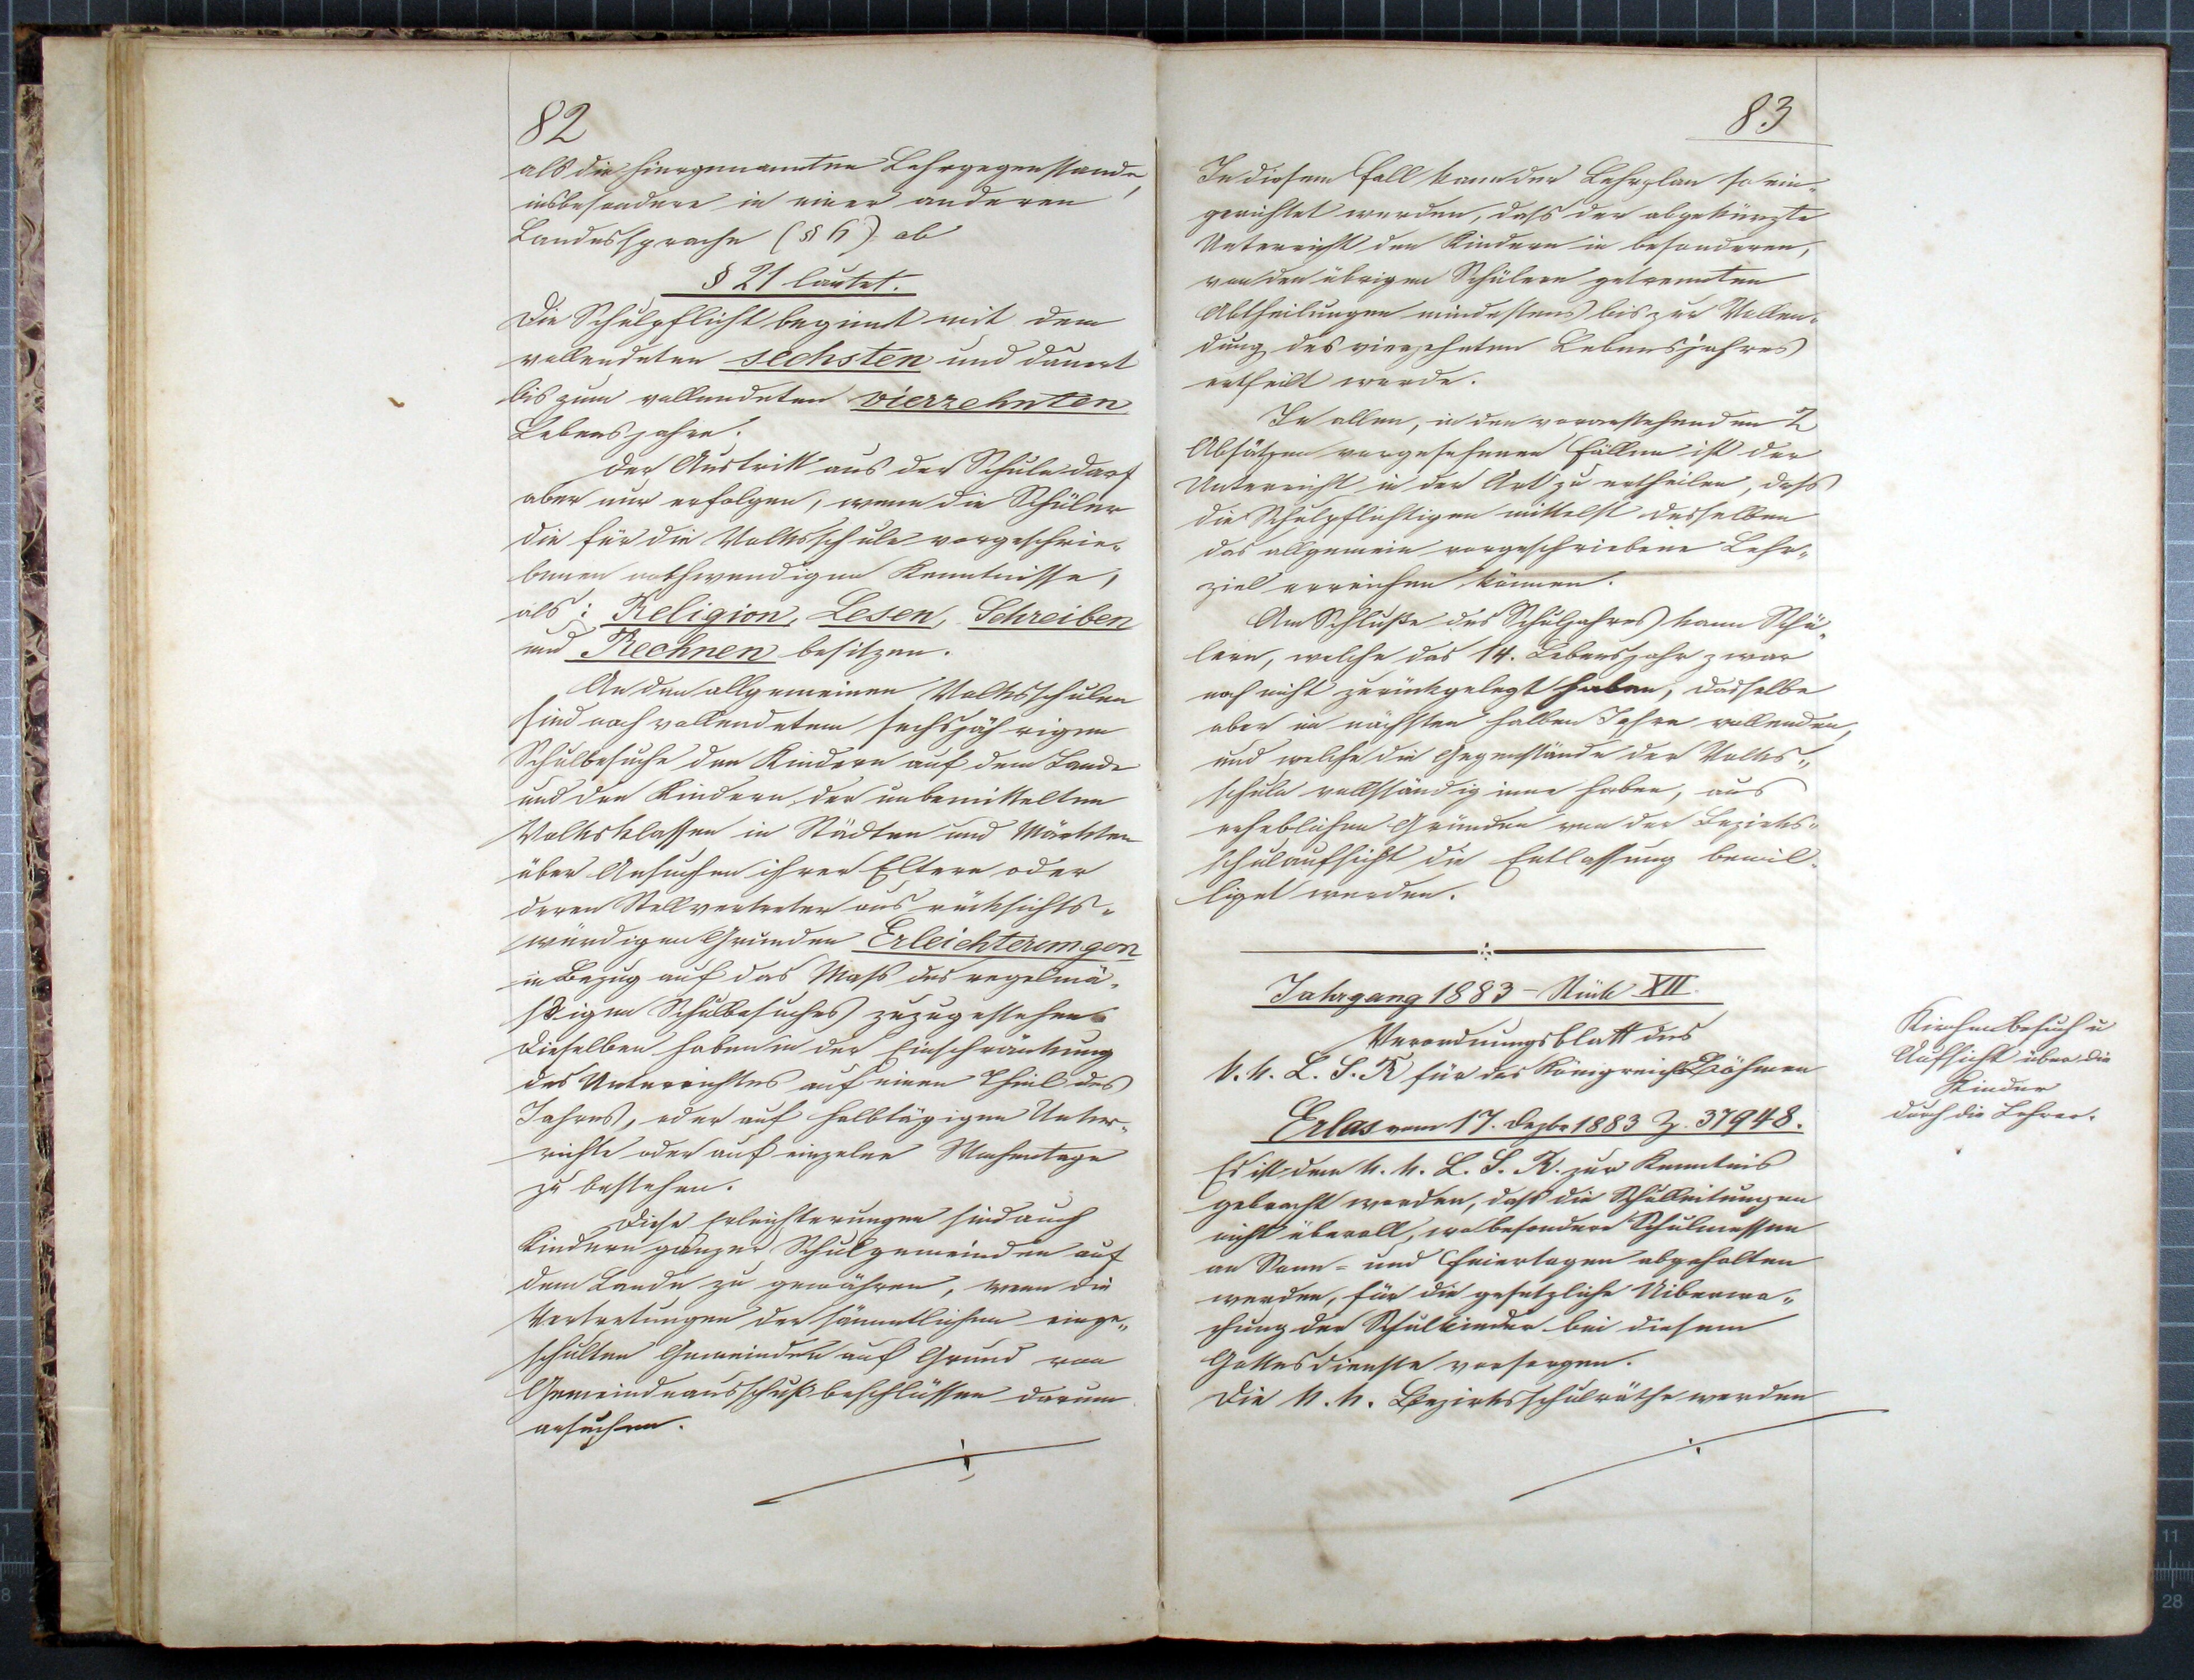 82
als die hiergenannten Lehrgegenstande,
insbesondere in einer anderen
Landessprache (§ 6) ab
§ 21 lautet.
Die Schulpflicht beginnt mit dem
vollendeten sechsten und dauert
bis zum vollendeten vierzehnten
Lebensjahre.
Der Austritt aus der Schule darf
aber nur erfolgen, wenn die Schüler
die für die Volksschule vorgeschrie-
benen nothwendigen Kenntnisse,
als: Religion, Lesen, Schreiben
und Rechnen besitzen.
An den allgemeinen Volksschulen
sind nach vollendetem sechsjährigen
Schulbesuche den Kindern auf dem Lande
und den Kindern der unbemittelten
Volksklassen in Städten und Märkten
über Ansuchen ihrer Eltern oder
deren Stellvertreter aus rücksichts-
würdigen Grunden Erleichterungen
in Bezug auf das Maß des regelmä-
ßigen Schulbesuches zuzugestehen
Dieselben haben in der Einschränkung
des Unterrichtes auf einen Theil des
Jahres, oder auf halbtägigen Unter-
richte oder auf einzelne Wochentage
zu bestehen.
Diese Erleichterungen sind auch
Kindern ganzer Schulgemeinden auf
dem Lande zu gewähren, wenn die
Vertretungen der sämmtlichen einge-
schulten Gemeinden auf Grund von
Gemeindeausschußbeschlüssen darum
ansuchen.
83
In diesem Fall kann der Lehrplan so ein-
gerichtet werden, dass der abgekürzte
Unterricht den Kindern in besonderen,
von den übrigen Schülern getrennten
Abtheilungen mindestens bis zur Vollen-
dung des vierzehnten Lebensjahres
ertheilt werde.
In allen, in den voranstehenden 2
Absätzen vorgesehenen Fällen ist der
Unterricht in der Art zu ertheilen, dass
die Schulpflichtigen mittelst desselben
das allgemein vorgeschriebene Lehr-
ziel erreichen können.
Am Schluße des Schuljahres kann Schü-
lern, welche das 14. Lebensjahr zwar
noch nicht zurückgelegt haben, dasselbe
aber im nächsten halben Jahre vollenden,
und welche die Gegenstände der Volks-
schule vollständig inne haben, aus
erheblichen Gründen von der Bezirks-
schulaufsicht die Entlassung bewil-
liget werden.
Jahrgang 1883 - Stück XII.
Verordnungsblatt des
k. k. L. S. R für das Königreich Böhmen
Erlas vom 17. Dezbr 1883 Z. 37948.
Es ist dem k. k. L. S. R. zur Kenntnis
gebracht worden, dass die Schulleitungen
nicht überall, wo besondere Schulmessen
an Sonn- und Feiertagen abgehalten
werden, für die gesetzliche Uiberwa-
chung der Schulkinder bei diesem
Gottesdienste vorsorgen.
Die k. k. Bezirksschulräthe werden
Kirchenbesuch u
Aufsicht über die
Kinder
durch die Lehrer.